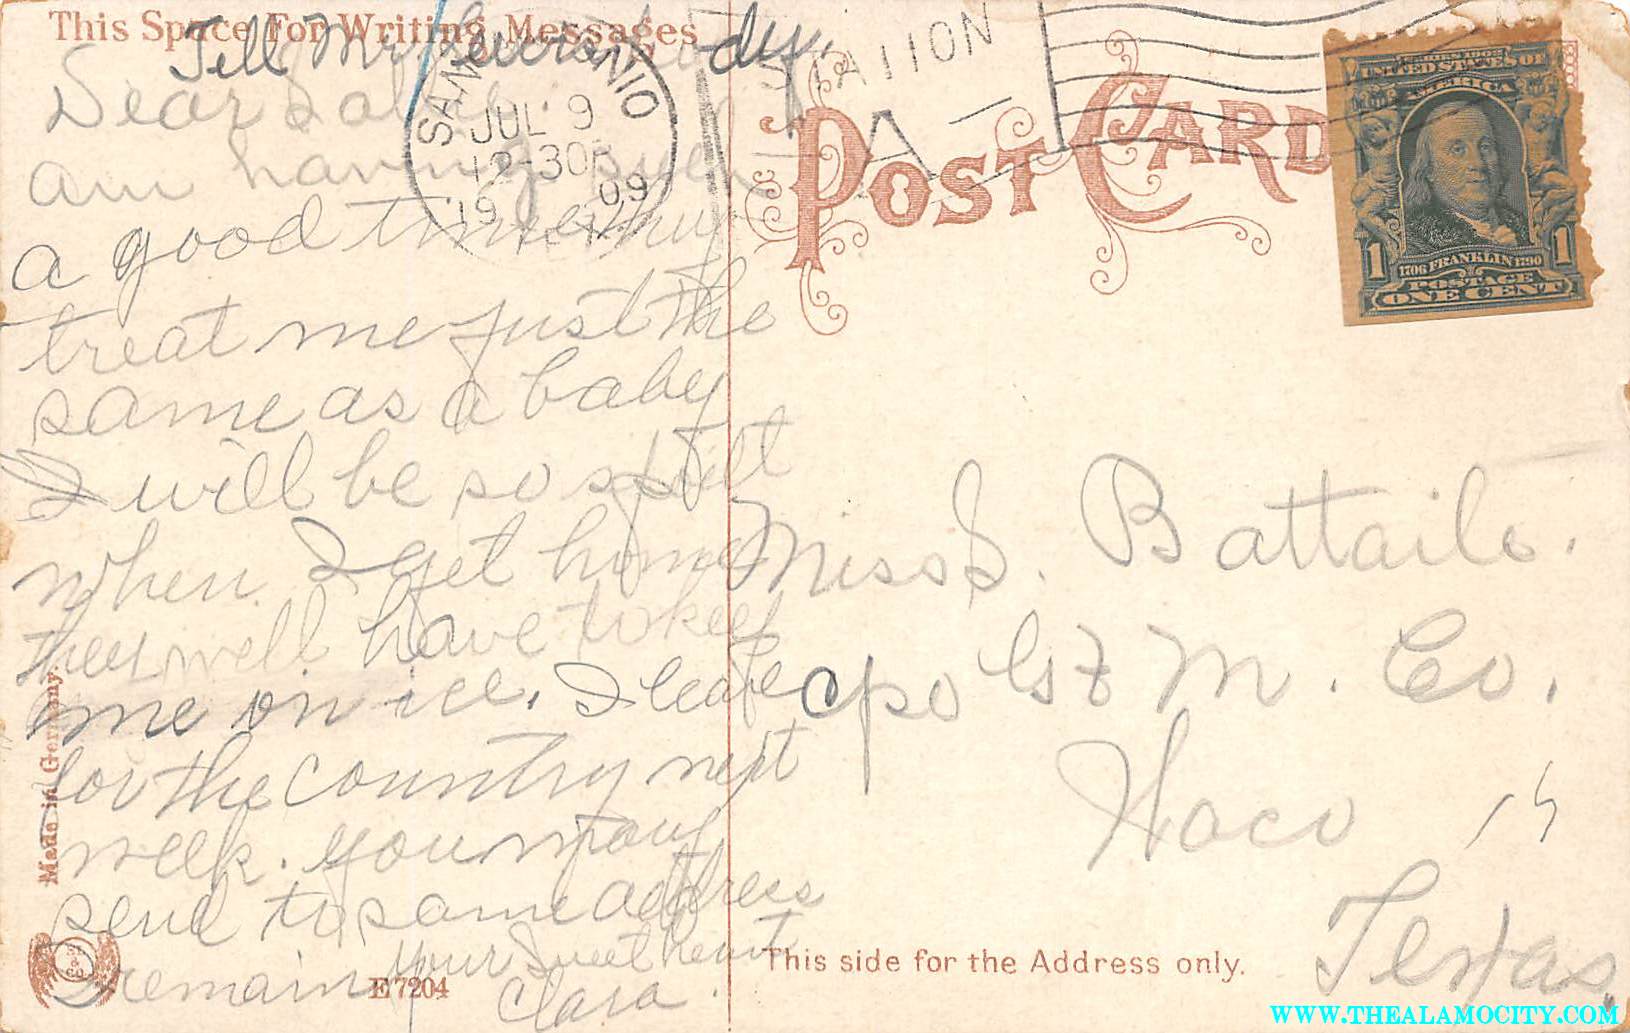 This Space For Writing Messages
Tell Mr
Dear
am having such
a good time they
treat me just the
same as a baby
I will be so spoilt
when I get home
they will have to keep
me on ice. I leave
for the country next
week. you may
send to same address
I remain your Sweetheart
Clara.
Made in Germany.
E 7204
SAN ANTONIO
JUL 9
12-30P
1909
TEX.
STATION
A
POST CARD
SERIES 1902
UNITED STATES OF
AMERICA
1 1
1706 FRANKLIN 1790
POSTAGE
ONE CENT
Miss S. Battaile.
M. Co.
Waco
Texas.
This side for the Address only.
WWW.THEALAMOCITY.COM